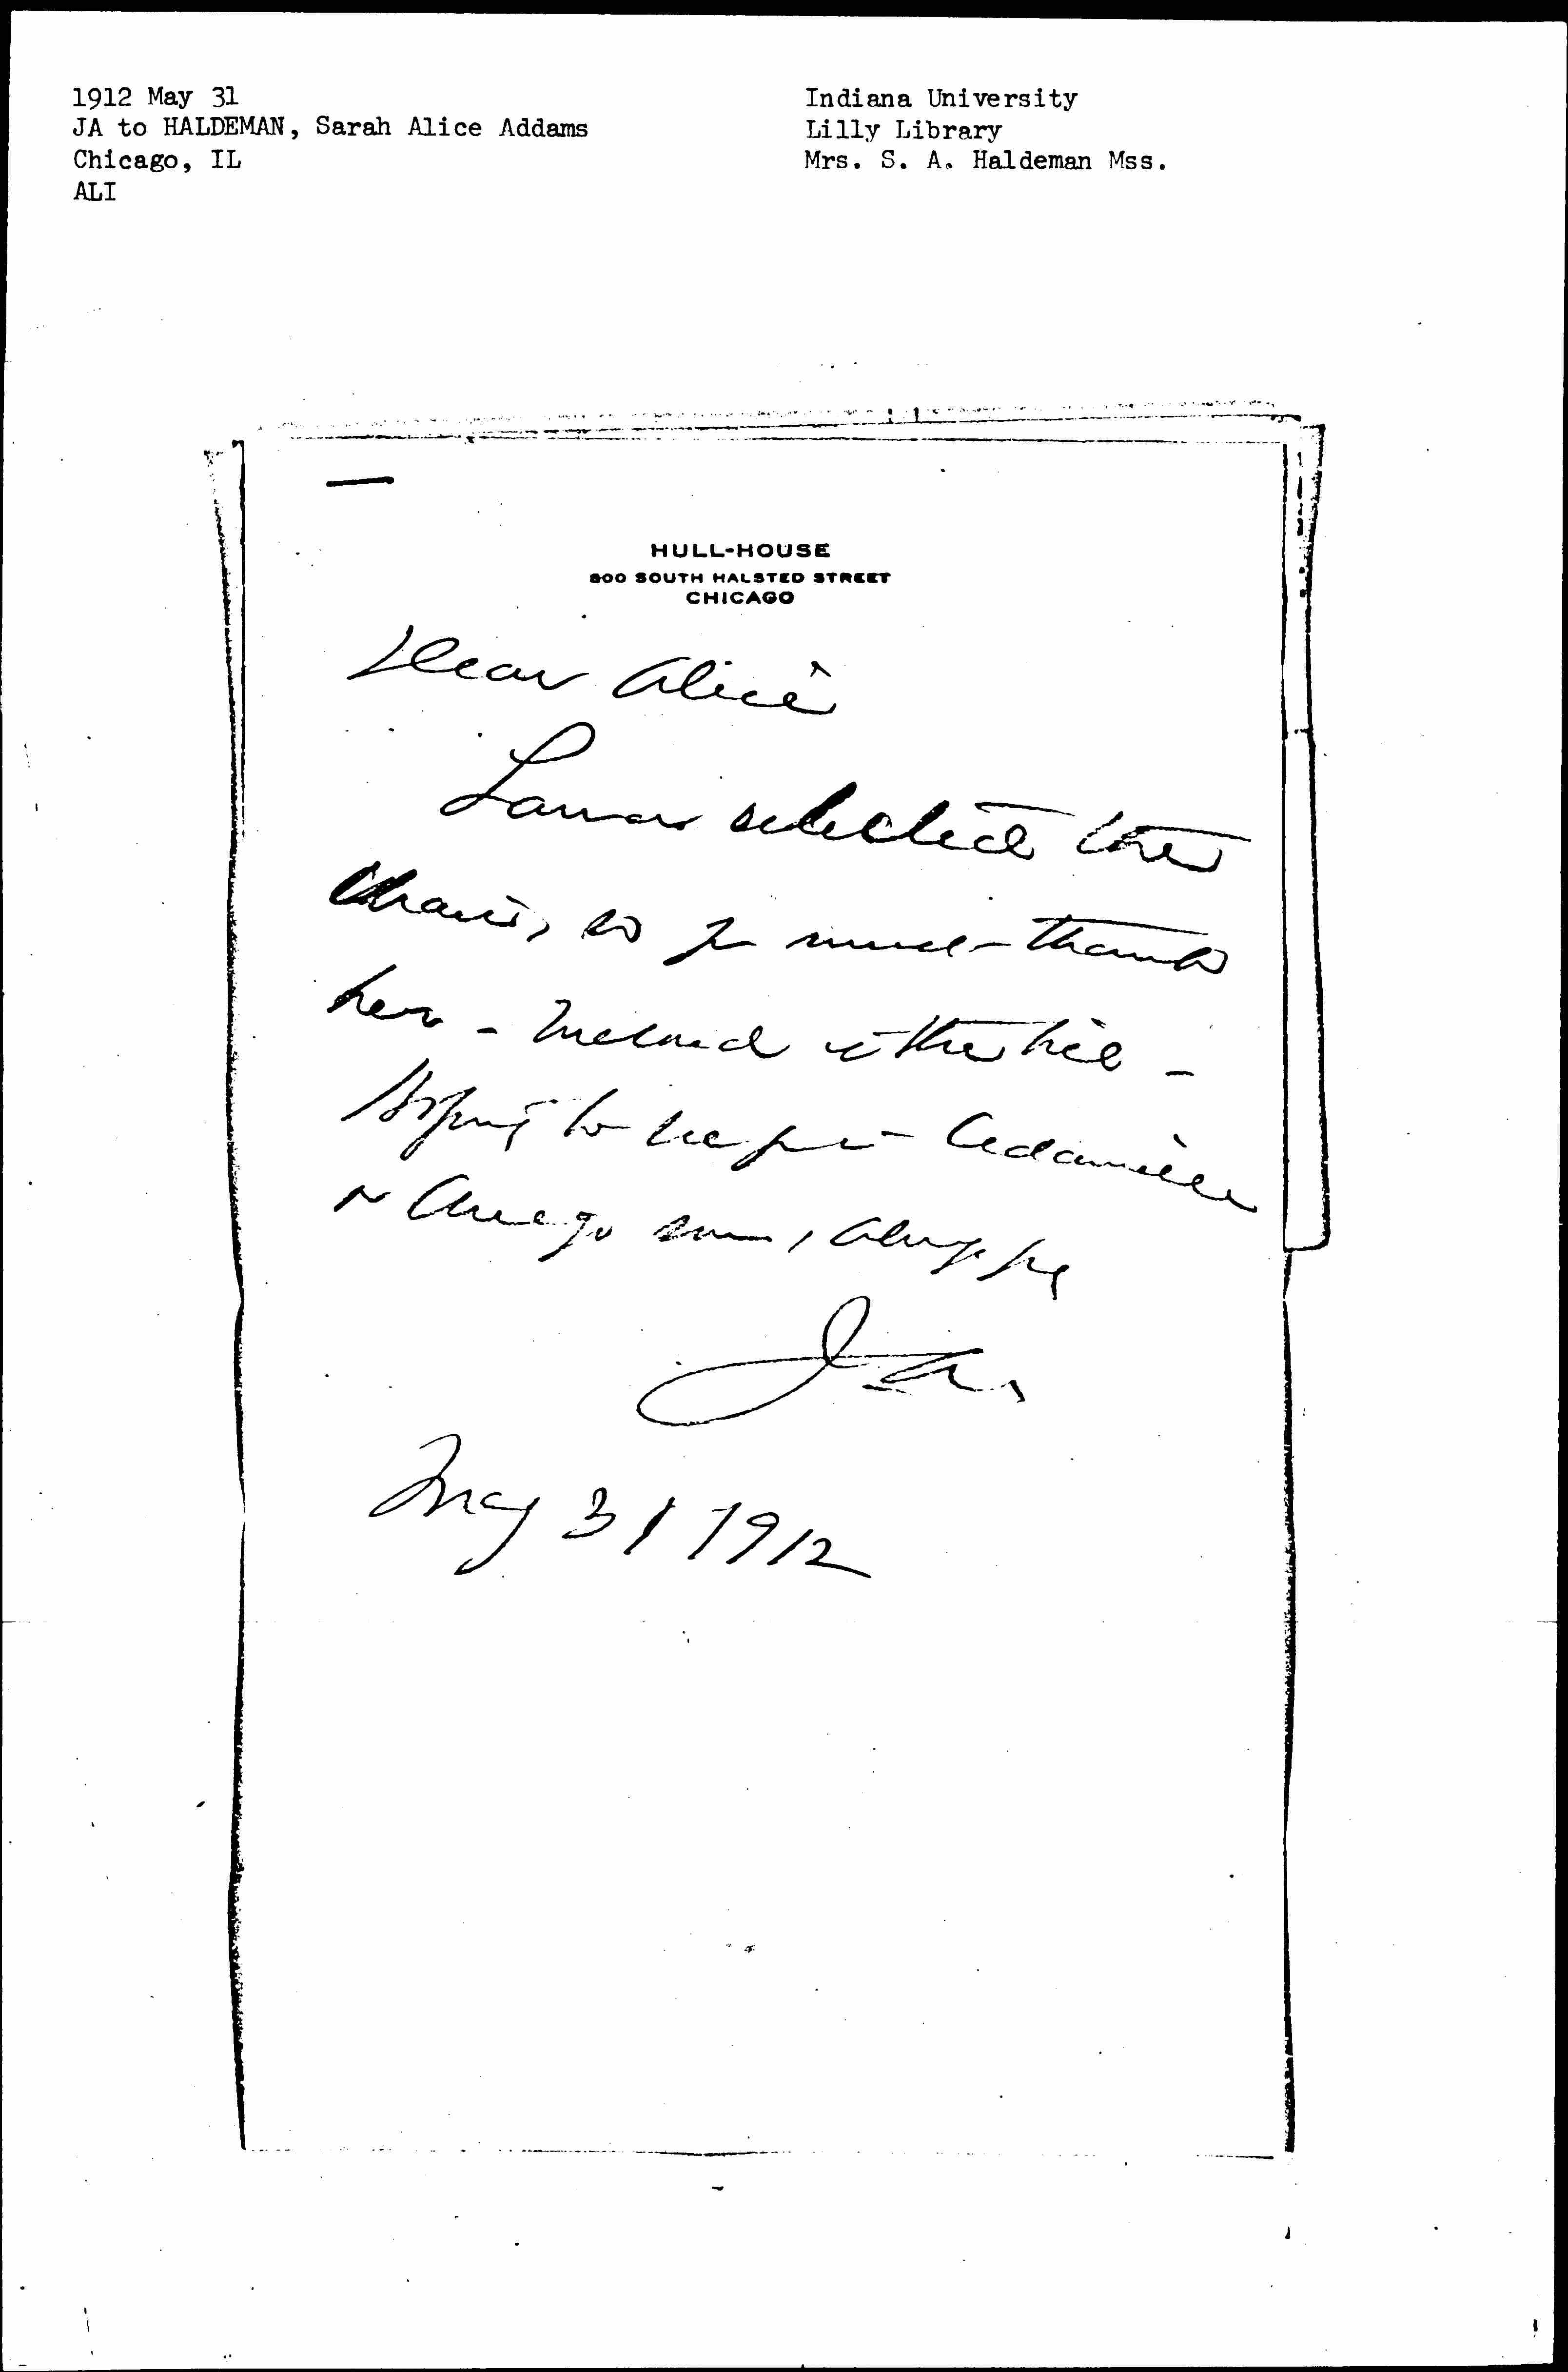 1912 May 31
JA to HALDEMAN, Sarah Alice Addams
Chicago, IL
ALI
Indiana University
Lilly Library
Mrs. S. A. Haldeman Mss.
HULL-HOUSE
800 SOUTH HALSTED STREET
CHICAGO
Dear Alice
selected the
chairs, so you must thank
her - Enclosed is the bill -
Hoping to see you in Cedarville
or Chicago soon, always yrs
JA.
May 31 1912